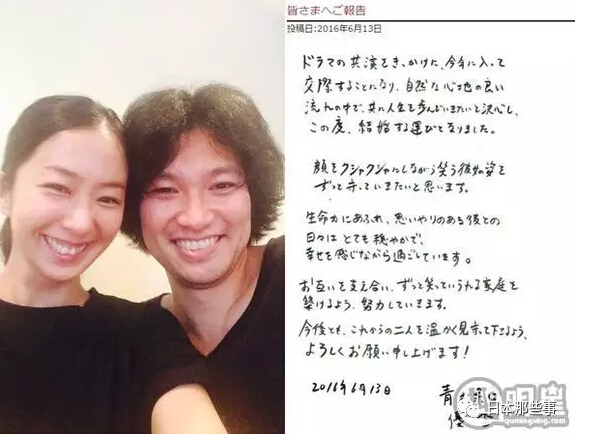 皆さまへご報告
投稿日:2016年6月13日
ドラマの共演をきっかけに、今年に入って
交際することになり、自然な心地の良い
流れの中で、共に人生を歩んでいきたいと決心し、
この度、結婚する運びとなりました。
顔をクシャクシャにしながら笑う彼女の姿を
ずっと守っていきたいと思います。
生命力にあふれ、思いやりのある彼との
日々はとても穏やかで、
幸せを感じながら過ごしています。
お互いを支え合い、ずっと笑っていられる家庭を
築けるよう、努力していきます。
今後とも、これからの二人を温かく見守って下さるよう、
よろしくお願い申し上げます！
2016年6月13日
青
優
明星
日本那些事